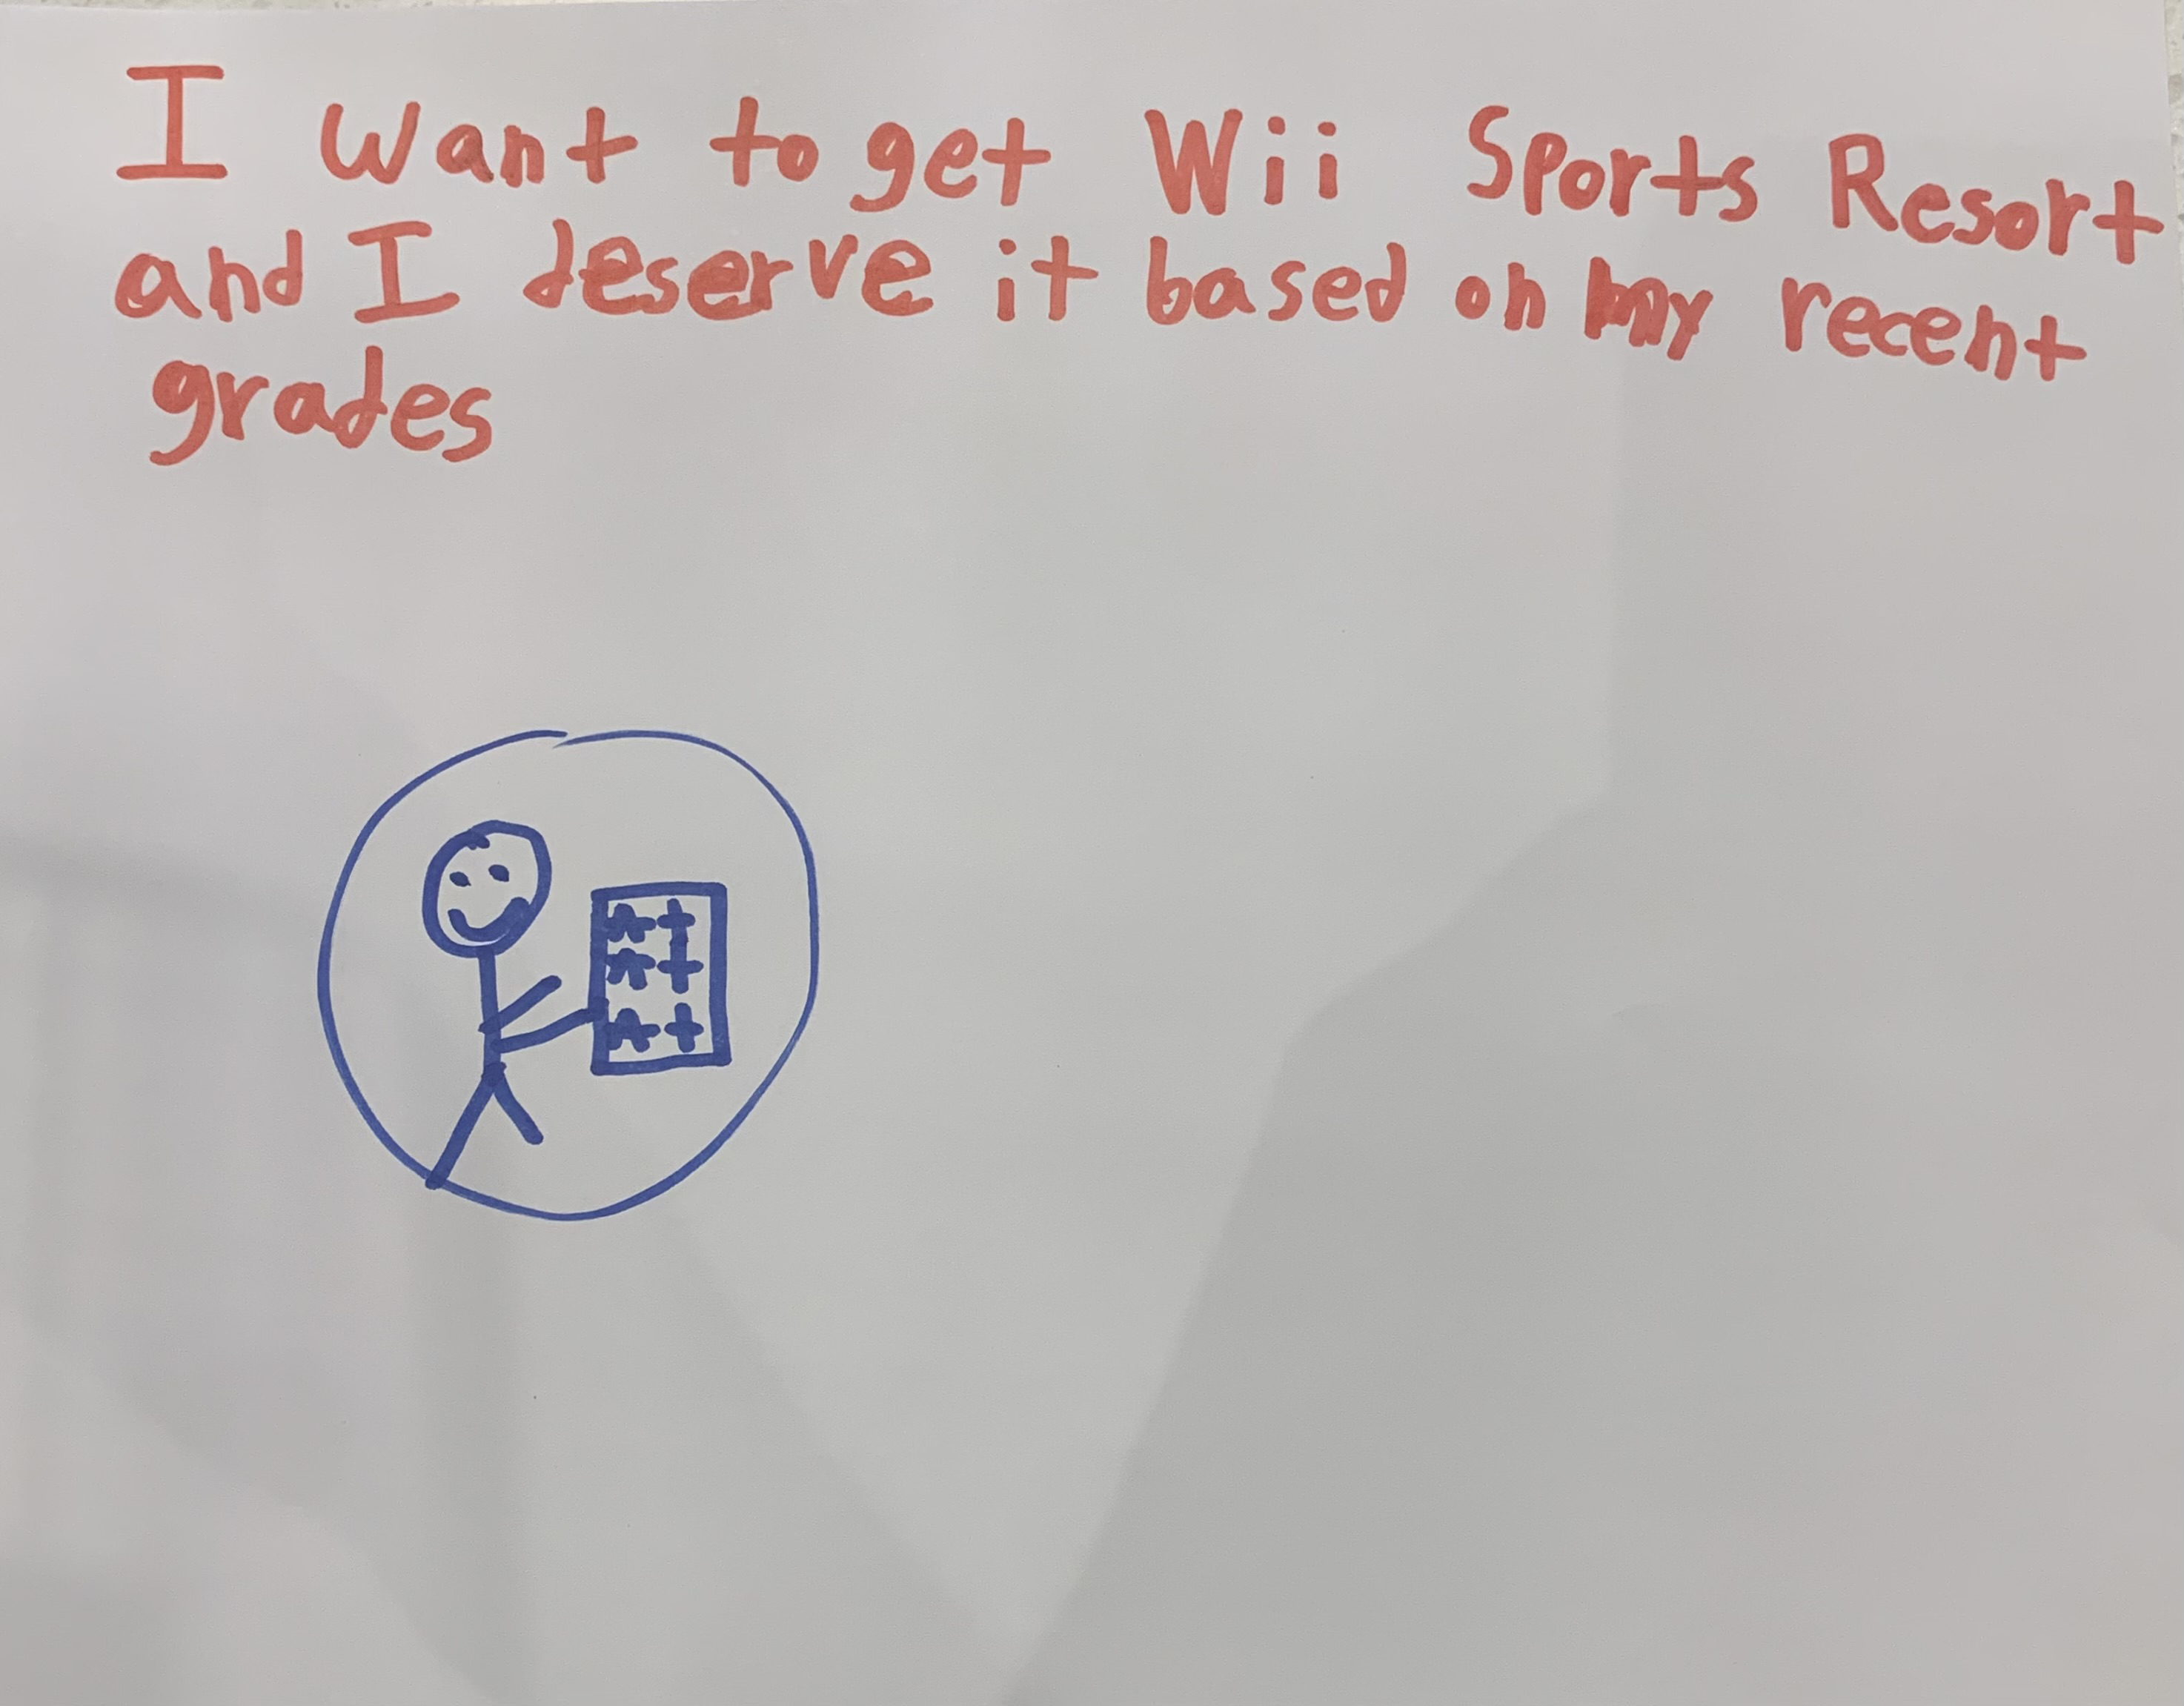 I want to get Wii Sports Resort
and I deserve it based on my recent
grades
A+
A+
A+